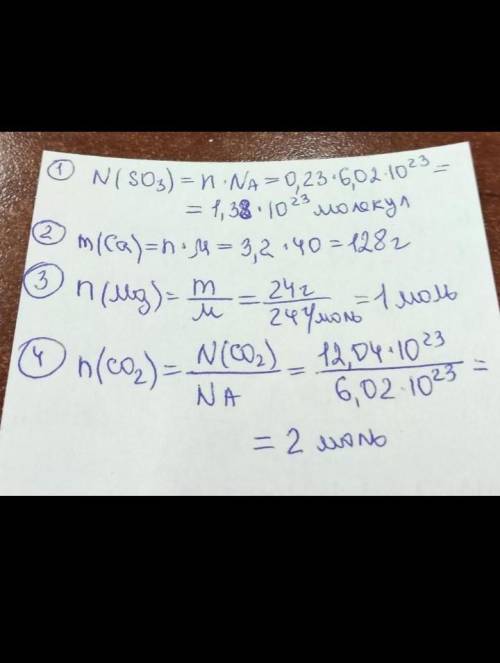 ① N(SO₃) = n · NA = 0,23 · 6,02 · 10²³ =
= 1,38 · 10²³ молекул
② m(Ca) = n · M = 3,2 · 40 = 128 г
③ n(Mg) = m/M = 24 г/24 г/моль = 1 моль
④ n(CO₂) = N(CO₂)/NA = 12,04 · 10²³/6,02 · 10²³ =
= 2 моль